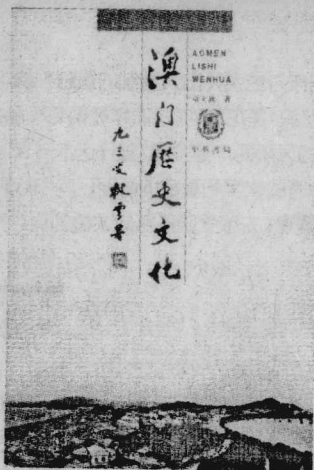 澳门历史文化
AOMEN
LISHI
WENHUA
章文钦 著
中华书局
九三叟